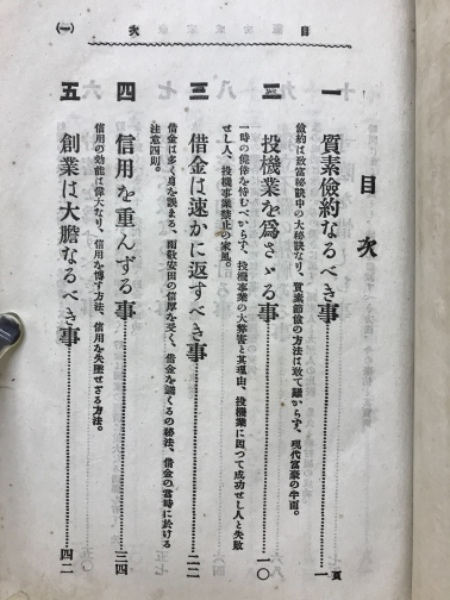 目次 (一)
目次
一 質素儉約なるべき事……一頁
儉約は致富秘訣中の大秘訣なり、質素節儉の方法は敢て難からず、現代富豪の半面。
二 投機業を爲さゞる事……一〇
一時の僥倖を恃むべからず、投機事業の大弊害と其理由、投機業に因つて成功せし人と失敗
せし人、投機事業禁止の家風。
三 借金は速かに返すべき事……二二
借金は多く身を誤まる、両敷安田の信厚を受く、借金を調くるの秘法、借金の當時に於ける
注意四則。
四 信用を重んずる事……三四
信用の効能は偉大なり、信用を博す方法、信用を失墜せざる方法。
五 創業は大膽なるべき事……四二